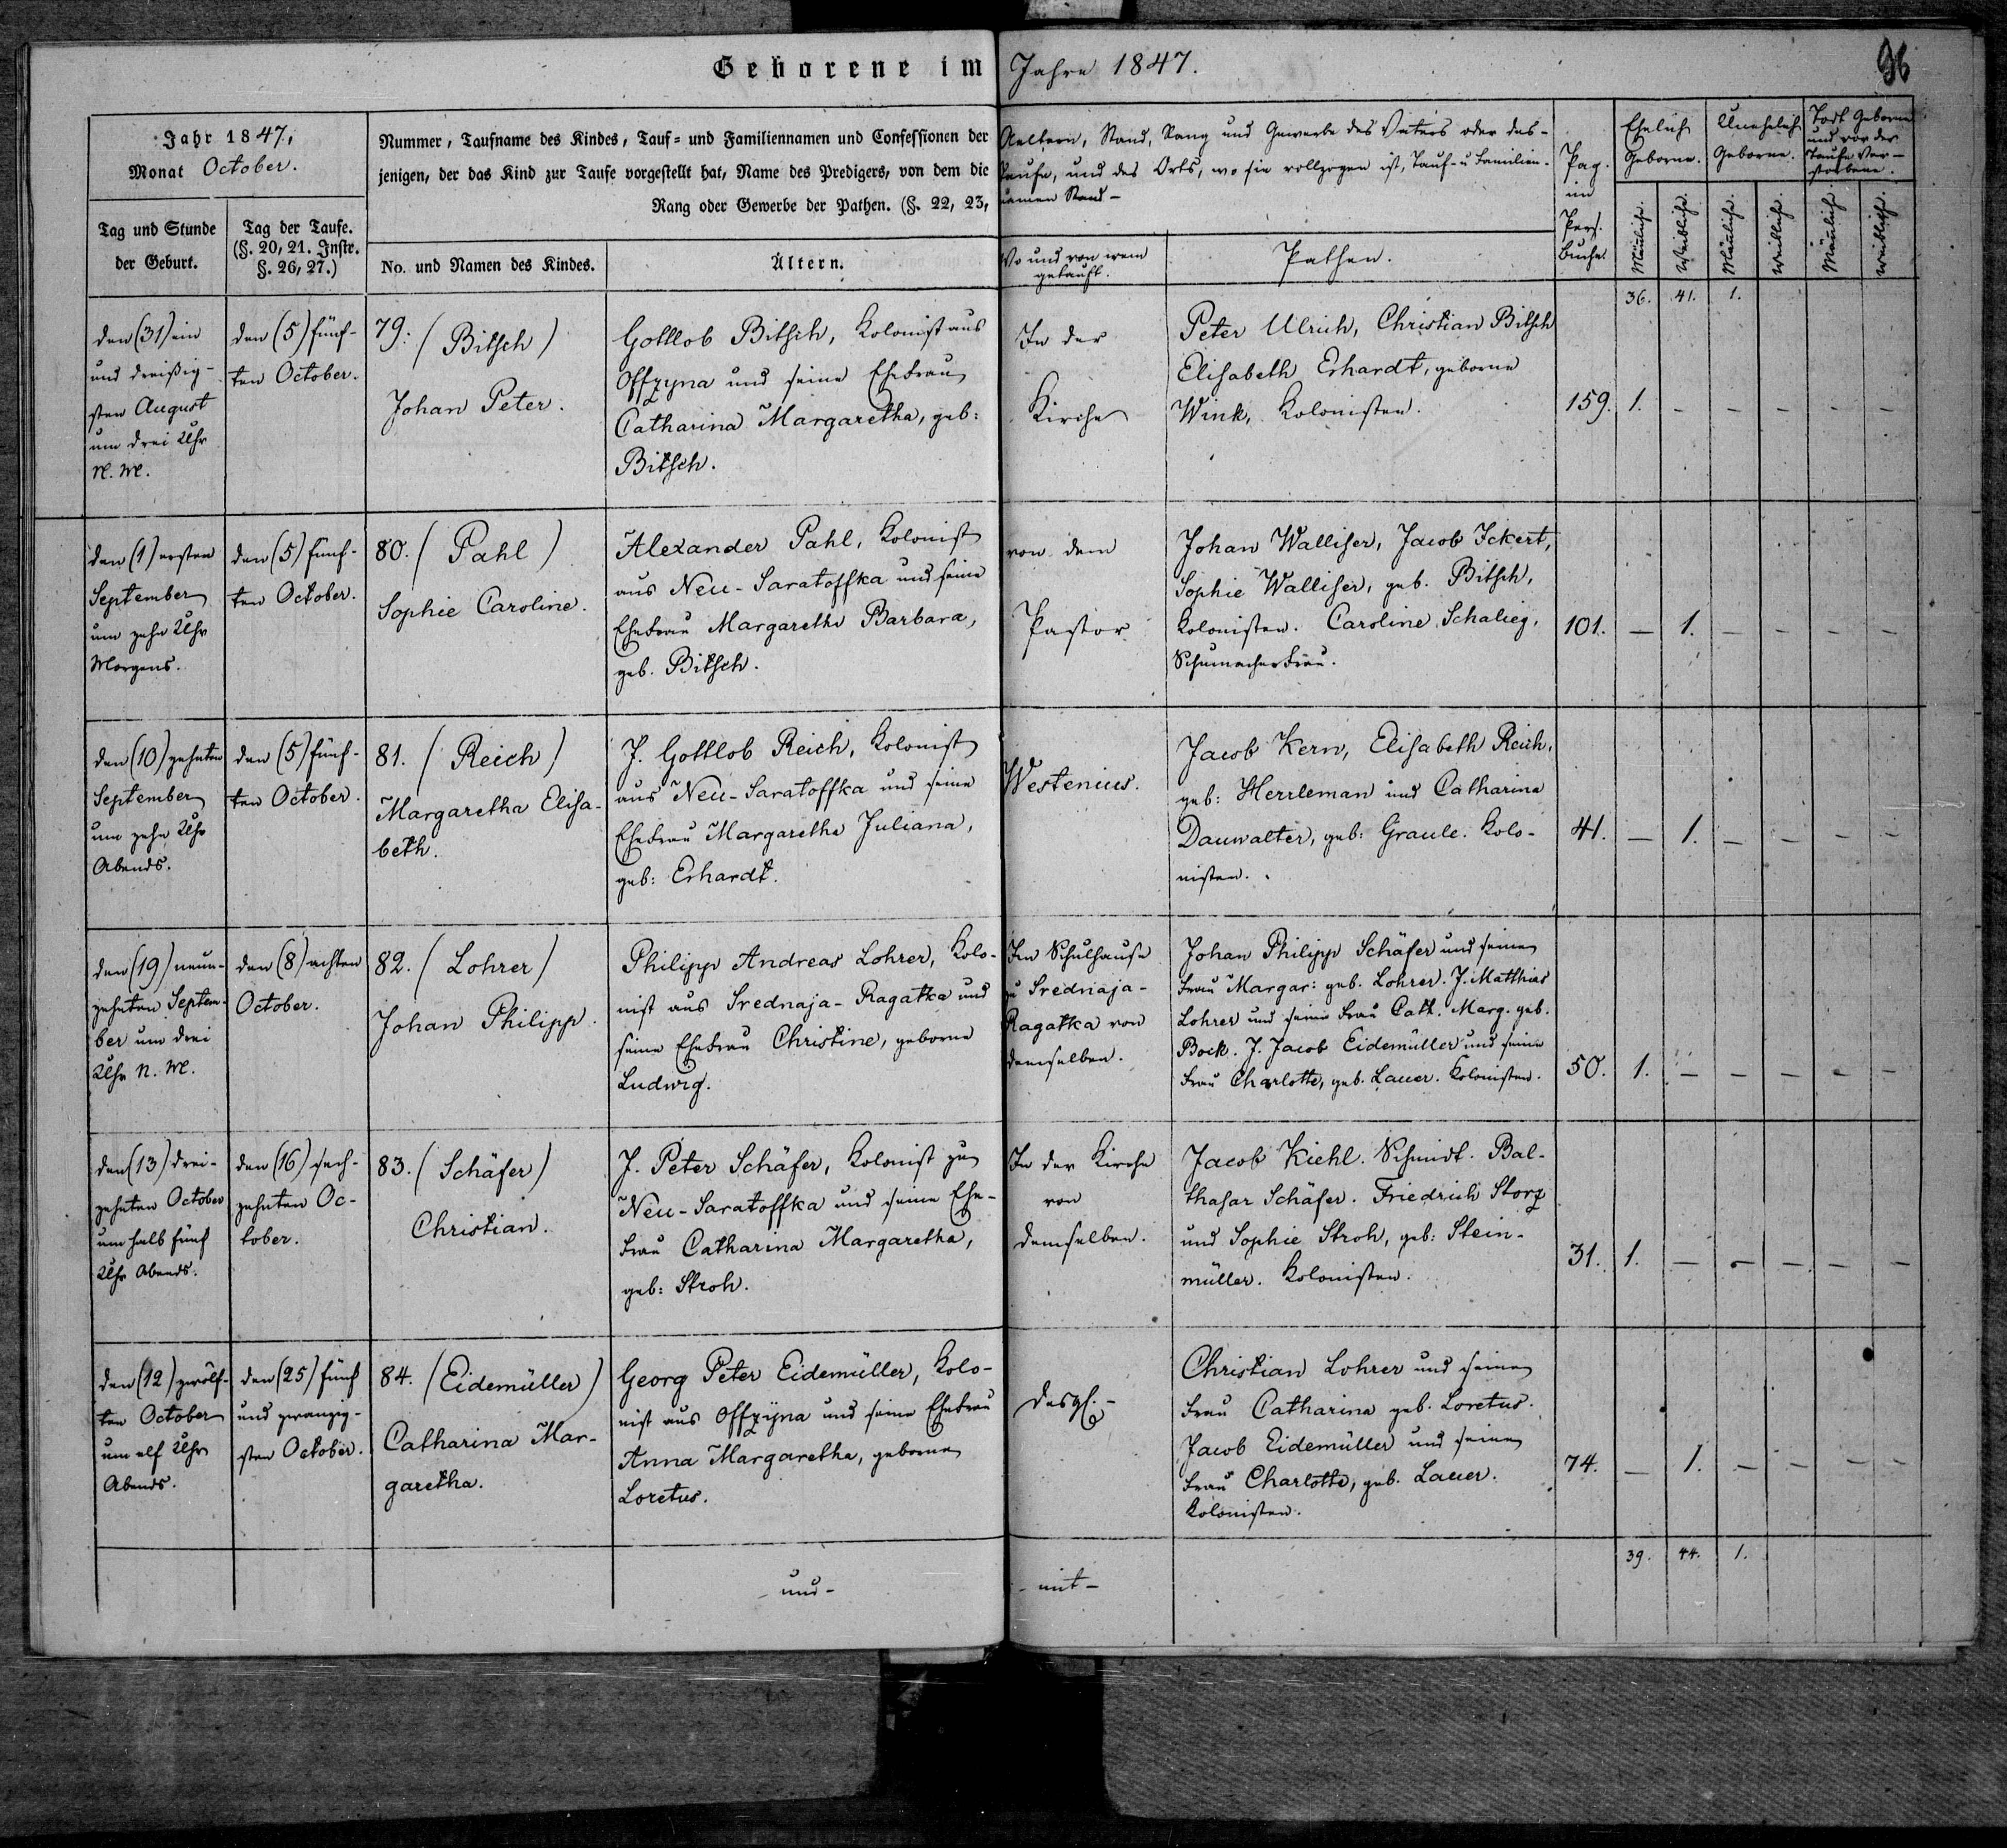 Geborene im Jahre 1847.
96
Jahr 1847,
Monat October.
Tag und Stunde
der Geburt.
Tag der Taufe.
(§. 20, 21. Instr.
§. 26, 27.)
Nummer, Taufname des Kindes, Tauf- und Familiennamen und Confessionen der Aeltern, Stand, Rang und Gewerbe des Vaters oder das-
jenigen, der das Kind zur Taufe vorgestellt hat, Name des Predigers, von dem die Taufe, und des Orts, wo sie vollzogen ist, Tauf- u Familien-
Rang oder Gewerbe der Pathen. (§. 22, 23, namen Stand-
No. und Namen des Kindes.
Ältern.
Wo und von wem
getauft.
Pathen.
Pag.
im
Pers.
Buche.
Ehelich
Geborne.
Unehelich
Geborne.
Todt Geborne
und vor der
Taufe Ver-
storbene.
Männliche.
Weibliche.
Männliche.
Weibliche.
Männliche.
Weibliche.
36. 41. 1.
den (31) ein
und dreißig-
sten August
um drei Uhr
N. M.
den (5) fünf-
ten October.
79. (Bitsch)
Johan Peter.
Gottlob Bitsch, Kolonist aus
Offzyna und seine Ehefrau
Catharina Margaretha, geb:
Bitsch.
In der
Kirche
Peter Ulrich, Christian Bitsch
Elisabeth Erhardt, geborne
Wink, Kolonisten.
159. 1. - - - - -
den (1) ersten
September
um zehn Uhr
Morgens.
den (5) fünf-
ten October.
80. (Pahl)
Sophie Caroline.
Alexander Pahl, Kolonist
aus Neu-Saratoffka und seine
Ehefrau Margaretha Barbara,
geb. Bitsch.
von dem
Pastor
Johan Walliser, Jacob Ickert,
Sophie Walliser, geb. Bitsch,
Kolonisten. Caroline Schalieg,
Schumacherfrau.
101. - 1. - - - -
den (10) zehnten
September
um zehn Uhr
Abends.
den (5) fünf-
ten October.
81. (Reich)
Margaretha Elisa-
beth.
J. Gottlob Reich, Kolonist
aus Neu-Saratoffka und seine
Ehefrau Margaretha Juliana,
geb: Erhardt.
Westenius.
Jacob Kern, Elisabeth Reich,
geb: Herrleman und Catharina
Dauwalter, geb: Graule. Kolo-
nisten.
41. - 1. - - - -
den (19) neun-
zehnten Septem-
ber um drei
Uhr N. M.
den (8) achten
October.
82. (Lohrer)
Johan Philipp.
Philipp Andreas Lohrer, Kolo-
nist aus Srednaja-Ragatka und
seine Ehefrau Christine, geborne
Ludwig.
Im Schulhause
zu Srednaja-
Ragatka von
demselben.
Johan Philipp Schäfer und seine
Frau Margar: geb. Lohrer. J. Matthias
Lohrer und seine Frau Cath. Marg. geb.
Bock. J. Jacob Eidemüller und seine
Frau Charlotte, geb. Lauer. Kolonisten.
50. 1. - - - - -
den (13) drei-
zehnten October
um halb fünf
Uhr Abends.
den (16) sech-
zehnten Oc-
tober.
83. (Schäfer)
Christian.
J. Peter Schäfer, Kolonist zu
Neu-Saratoffka und seine Ehe-
frau Catharina Margaretha,
geb: Stroh.
In der Kirche
von
demselben.
Jacob Kiehl. Schmidt. Bal-
thasar Schäfer. Friedrich Storz
und Sophie Stroh, geb: Stein-
müller. Kolonisten.
31. 1. - - - - -
den (12) zwölf-
ten October
um elf Uhr
Abends.
den (25) fünf
und zwanzig-
sten October.
84. (Eidemüller)
Catharina Mar-
garetha.
Georg Peter Eidemüller, Kolo-
nist aus Offzyna und seine Ehefrau
Anna Margaretha, geborne
Loretus.
desgl.-
Christian Lohrer und seine
Frau Catharina geb. Loretus.
Jacob Eidemüller und seine
Frau Charlotte, geb. Lauer.
Kolonisten.
74. - 1. - - - -
39. 44. 1.
und-
-mit-